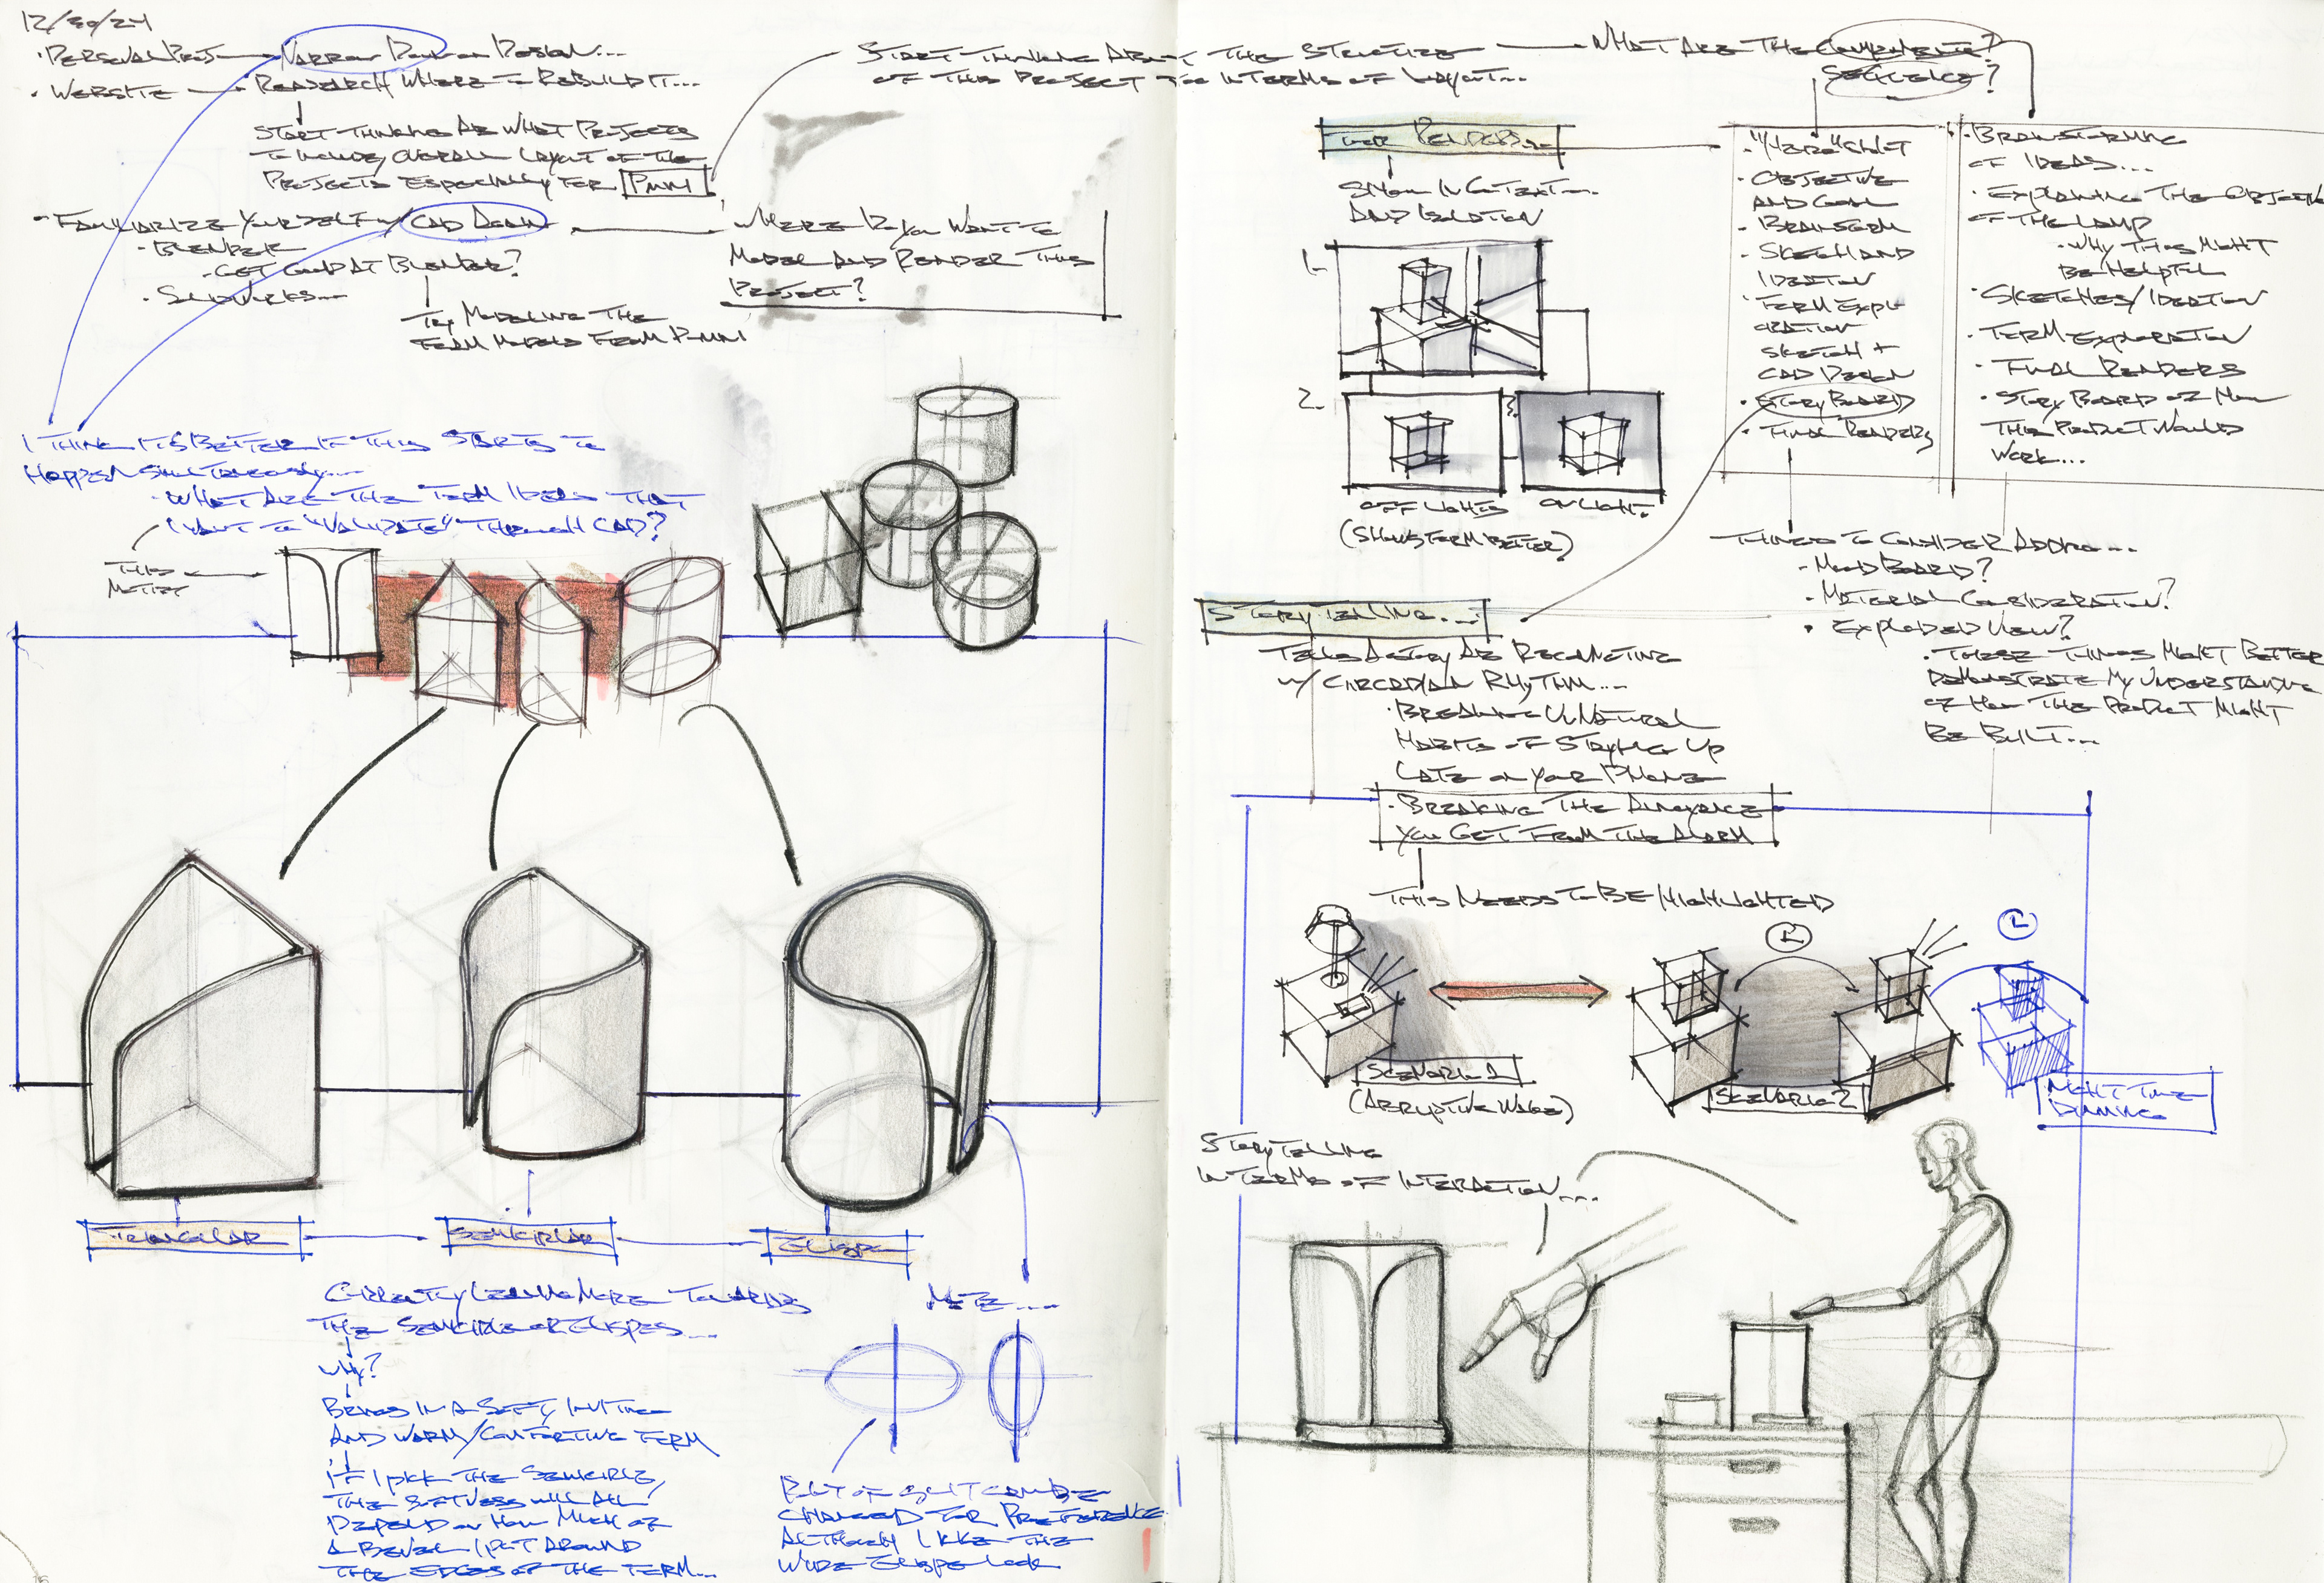 12/30/24
· PERSONAL PROJ
NARROW DOWN DESIGN...
· WEBSITE
RESEARCH WHERE TO REBUILD IT...
START THINKING AB WHAT PROJECTS
TO INCLUDE, OVERALL LAYOUT OF THE
PROJECTS ESPECIALLY FOR PNNI
· FAMILIARIZE YOURSELF W/ CAD AGAIN
· BLENDER
· GET GOOD AT BLENDER?
· SOLIDWORKS...
TRY MODELING THE
FORM MODELS FROM PNNI
WHERE DO YOU WANT TO
MODEL AND RENDER THIS
PROJECT?
START THINKING ABOUT THE STRUCTURE
OF THIS PROJECT TOO IN TERMS OF LAYOUT...
WHAT ARE THE COMPONENTS?
SEQUENCE?
I THINK IT'S BETTER IF THIS STARTS TO
HAPPEN SIMULTANEOUSLY...
· WHAT ARE THE FORM IDEAS THAT
I WANT TO "VALIDATE" THROUGH CAD?
THIS
MOTIF
TRIANGULAR
SEMICIRCULAR
ELLIPSE
CURRENTLY LEANING MORE TOWARDS
THE SEMICIRCLE OR ELLIPSES...
WHY?
BRINGS IN A SOFT, INVITING
AND WARM/COMFORTING FORM
IF I PICK THE SEMICIRCLE,
THE SOFTNESS WILL ALL
DEPEND ON HOW MUCH OF
A BEVEL I PUT AROUND
THE EDGES OF THE FORM...
NOTE...
POINT OF SPLIT CAN BE
CHANGED FOR PREFERENCE
ALTHOUGH I LIKE THE
WIDE ELLIPSE LOOK
FOR RENDERS...
SHOW IN CONTEXT...
AND ISOLATION
1.
2.
3.
OFF LIGHTS
(SHOWS FORM BETTER)
ON LIGHT
· "HERO" SHOT
· OBJECTIVE
AND GOAL
· BRAINSTORM
· SKETCH AND
IDEATION
· FORM EXPLO
RATION
SKETCH +
CAD DESIGN
· STORYBOARD
· FINAL RENDERS
· BRAINSTORMING
OF IDEAS...
· EXPLAINING THE OBJECTIVE
OF THE LAMP
· WHY THIS MIGHT
BE HELPFUL
· SKETCHES/IDEATION
· FORM EXPLORATION
· FINAL RENDERS
· STORY BOARD OF HOW
THIS PRODUCT WOULD
WORK...
THINGS TO CONSIDER ADDING...
· MOOD BOARD?
· MATERIAL CONSIDERATION?
· EXPLODED VIEW?
· THESE THINGS MIGHT BETTER
DEMONSTRATE MY UNDERSTANDING
OF HOW THE PRODUCT MIGHT
BE BUILT...
STORYTELLING...
TELLS A STORY AB RECONNECTING
W/ CIRCADIAN RHYTHM...
· BREAKING UNNATURAL
HABITS OF STAYING UP
LATE ON YOUR PHONE
· BREAKING THE ANNOYANCE
YOU GET FROM THE ALARM
THIS NEEDS TO BE HIGHLIGHTED
SCENARIO 1
(ABRUPTIVE WAKE)
SCENARIO 2
NIGHT TIME
DIMMING
STORYTELLING
IN TERMS OF INTERACTION...